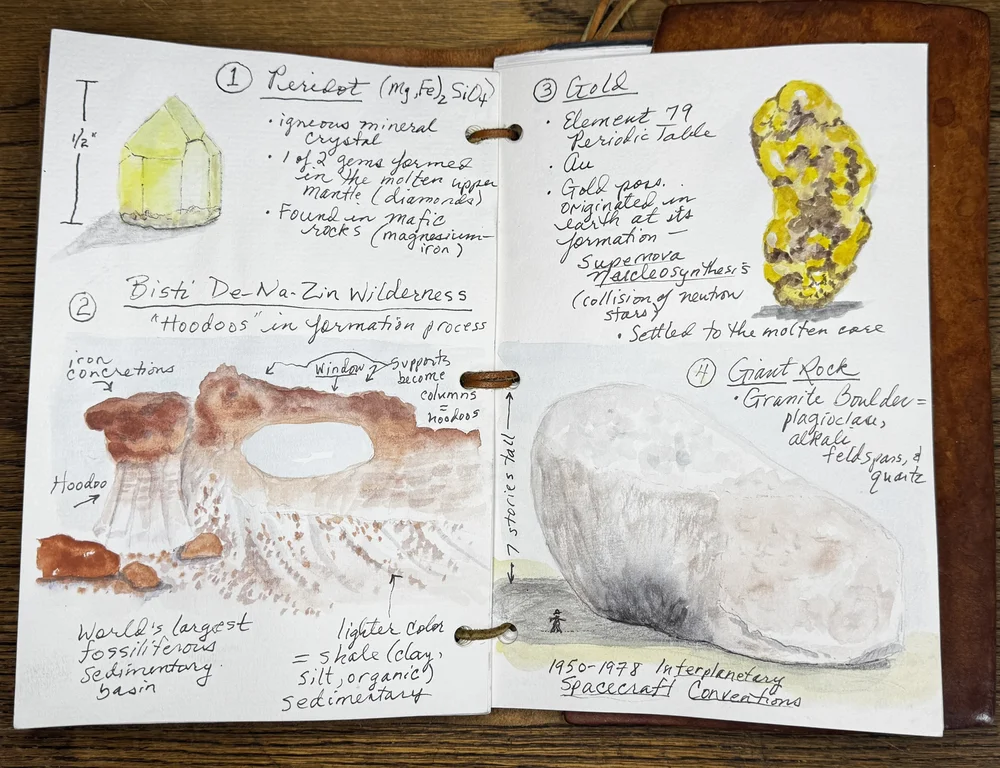 1/2"
① Peridot (Mg,Fe)2 SiO4
• igneous mineral
crystal
• 1 of 2 gems formed
in the molten upper
mantle (diamonds)
• Found in mafic
rocks (magnesium-
iron)
② Bisti De-Na-Zin Wilderness
"Hoodoos" in formation process
iron
concretions
Window
Supports
become
columns
=
hoodoos
Hoodoo
World's largest
fossiliferous
sedimentary
basin
lighter color
= shale (clay,
silt, organic)
sedimentary
③ Gold
• Element 79
Periodic Table
• Au
• Gold poss.
originated in
earth at its
formation –
Supernova
Nucleosynthesis
(collision of neutron
stars)
• Settled to the molten core
④ Giant Rock
• Granite Boulder =
plagioclase,
alkali
feldspars, &
quartz
7 stories tall
1950-1978 Interplanetary
Spacecraft Conventions